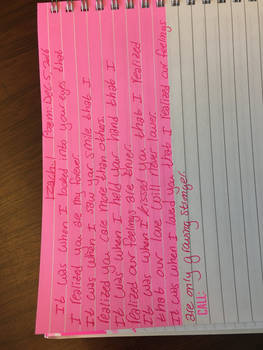 Poem: Dec 5, 2016
It was when I looked into your eyes that
I realized you are my forever.
It was when I saw your smile that I
realized you care more than others.
It was when I held your hand that I
realized our feelings are
It was when I kissed you that I realized
that our love will ever lower.
It was when I loved you that I realized our feelings
are only growing stronger.
CALL: